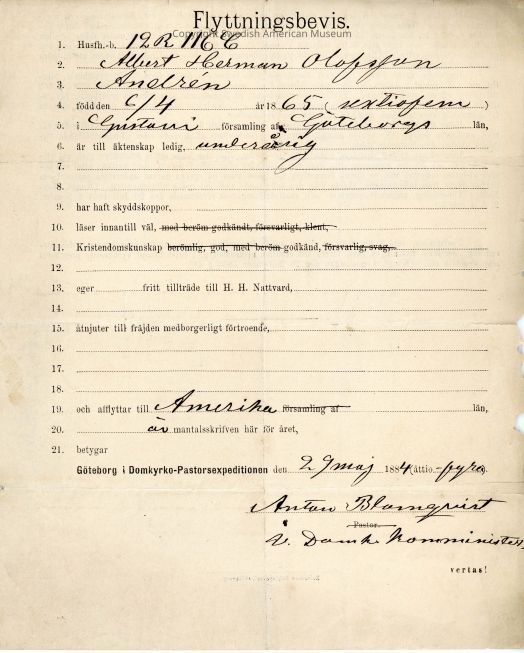 Flyttningsbevis.
Copyright Swedish American Museum
1. Husfh.-b. 12 R 1166
2. Albert Herman Olofsson
3. Andrén
4. född den 6/4 år 18 65 (sextiofem)
5. i Gustavi församling af Göteborgs län,
6. är till äktenskap ledig, underårig
7.
8.
9. har haft skyddskoppor,
10. läser innantill väl, med beröm godkändt, försvarligt, klent,
11. Kristendomskunskap berömlig, god, med beröm godkänd, försvarlig, svag,
12.
13. eger fritt tillträde till H. H. Nattvard,
14.
15. åtnjuter till fräjden medborgerligt förtroende,
16.
17.
18.
19. och afflyttar till Amerika församling af län,
20. är mantalsskrifven här för året,
21. betygar
Göteborg i Domkyrko-Pastorsexpeditionen den 29 maj 1884 (åttio-fyra).
Anton Blomqvist
Pastor.
v. Domk. Komminister
vertas!